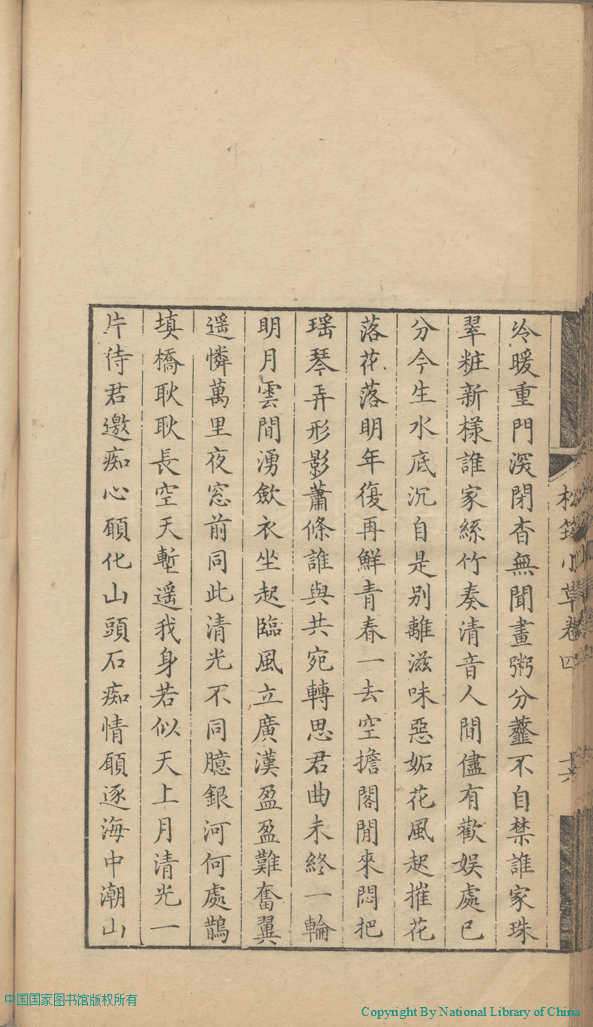 松筠小草卷四 十六
冷暖重門深閉杳無聞畫粥分虀不自禁誰家珠
翠粧新樣誰家絲竹奏清音人間儘有歡娱處已
分今生水底沉自是别離滋味惡妬花風起摧花
落花落明年復再鮮青春一去空擔閣閒來悶把
瑶琴弄形影蕭條誰與共宛轉思君曲未終一輪
明月雲間湧歛衣坐起臨風立廣漢盈盈難奮翼
遥憐萬里夜窓前同此清光不同臆銀河何處鵲
填橋耿耿長空天塹遥我身若似天上月清光一
片待君邀痴心願化山頭石痴情願逐海中潮山
中国国家图书馆版权所有
Copyright By National Library of China